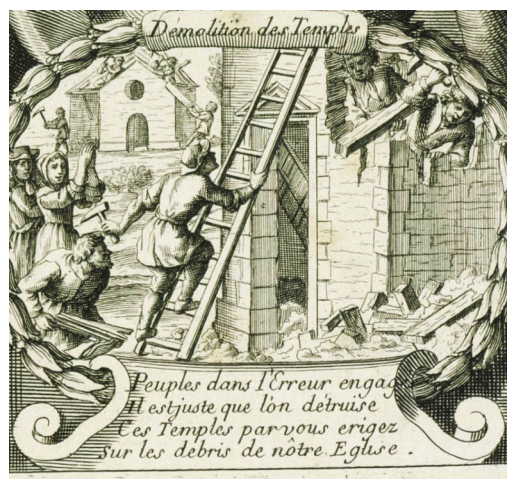 Démolition des Temples
Peuples dans l'Erreur engagez
Il est juste que l'on détruise
Ces Temples par vous erigez
Sur les débris de nôtre Eglise.